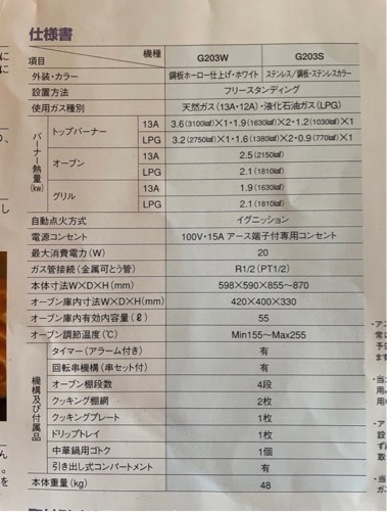 仕様書
項目 機種 G203W G203S
外装・カラー 鋼板ホーロー仕上げ・ホワイト ステンレス/鋼板・ステンレスカラー
設置方法 フリースタンディング
使用ガス種別 天然ガス(13A・12A)・液化石油ガス(LPG)
バーナー熱量(kw) トップバーナー 13A 3.6(3100㎉)×1・1.9(1630㎉)×2・1.2(1030㎉)×1
LPG 3.2(2750㎉)×1・1.6(1380㎉)×2・0.9(770㎉)×1
オーブン 13A 2.5(2150㎉)
LPG 2.1(1810㎉)
グリル 13A 1.9(1630㎉)
LPG 2.1(1810㎉)
自動点火方式 イグニッション
電源コンセント 100V・15A アース端子付専用コンセント
最大消費電力(W) 20
ガス管接続(金属可とう管) R1/2(PT1/2)
本体寸法W×D×H(mm) 598×590×855~870
オーブン庫内寸法W×D×H(mm) 420×400×330
オーブン庫内有効内容量(ℓ) 55
オーブン調節温度(℃) Min155~Max255
機構及び付属品 タイマー(アラーム付き) 有
回転串機構(串セット付) 有
オーブン棚段数 4段
クッキング棚網 2枚
クッキングプレート 1枚
ドリップトレイ 1枚
中華鍋用ゴトク 1個
引き出し式コンパートメント 有
本体重量(kg) 48